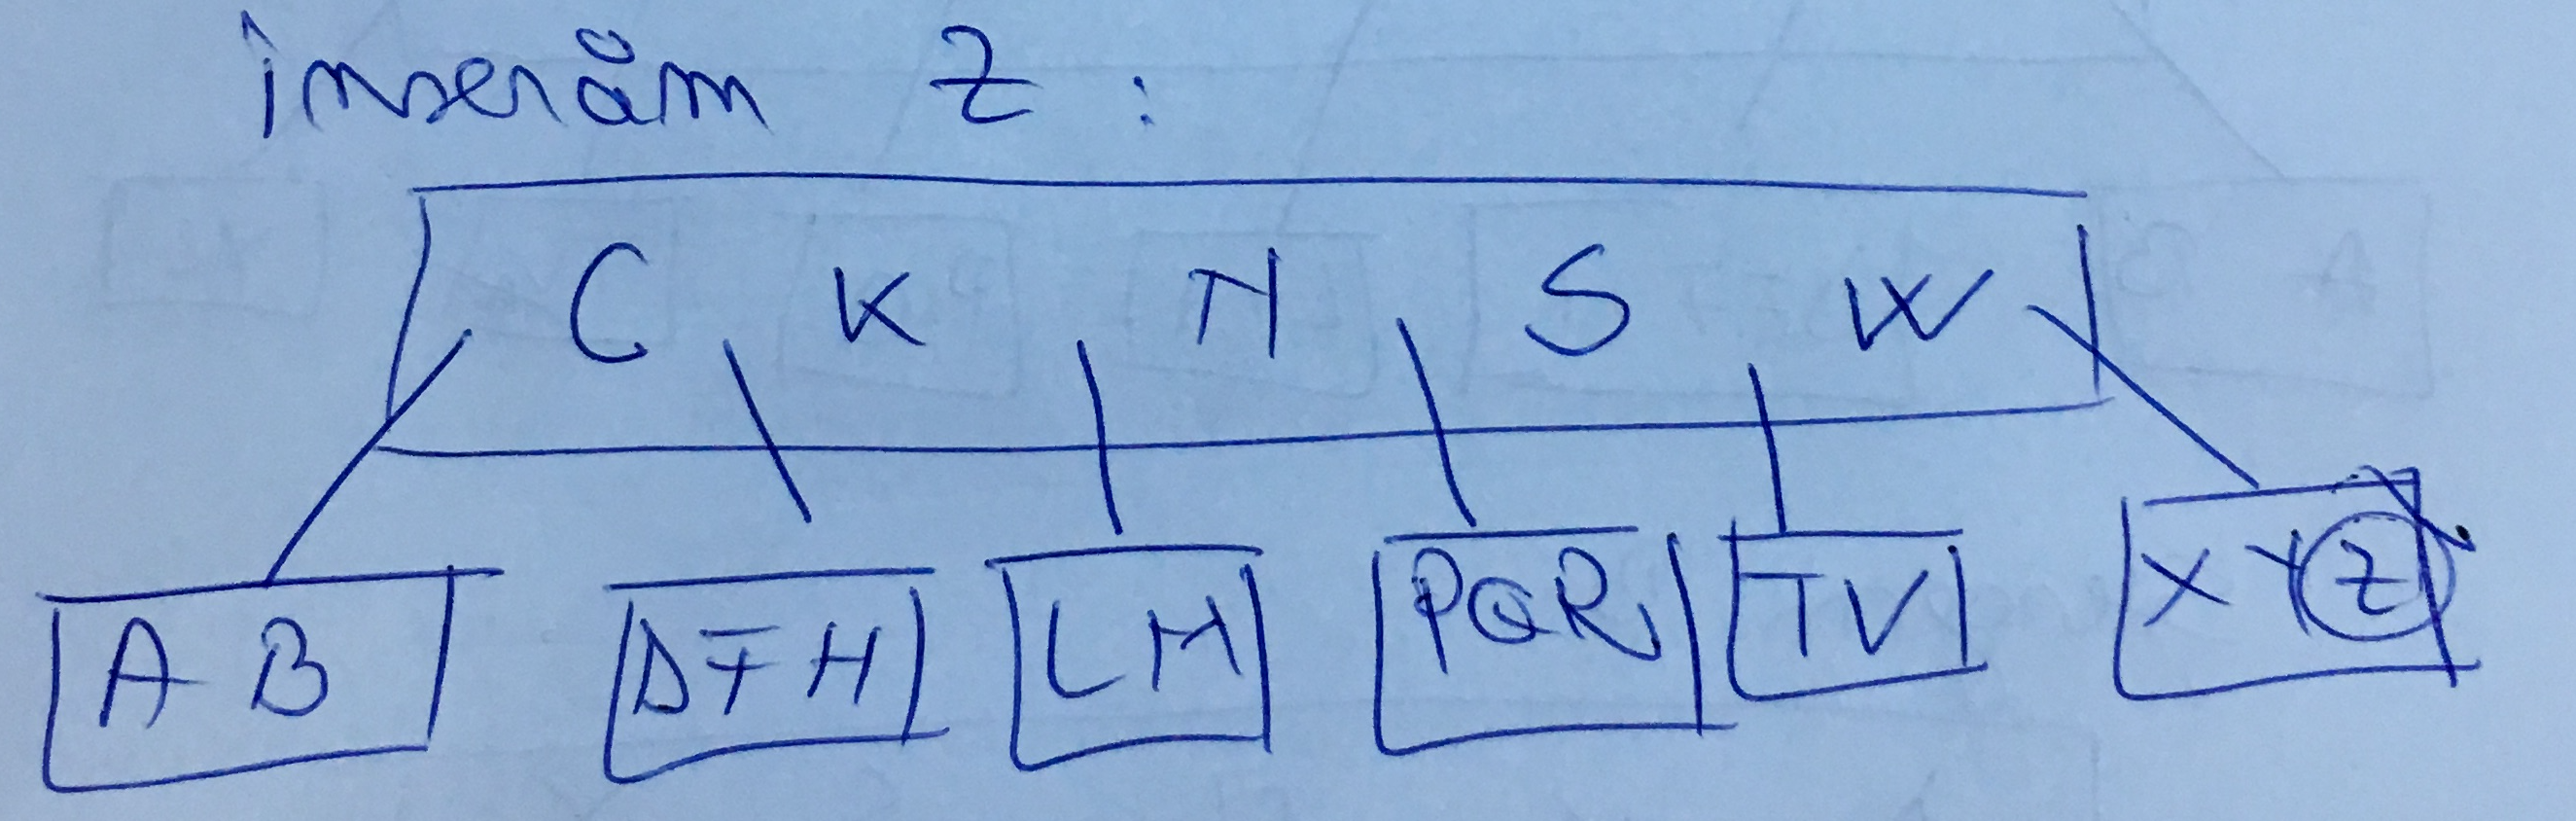 înserăm Z :
C K N S W
A B DFH LM PQR TV XYZ